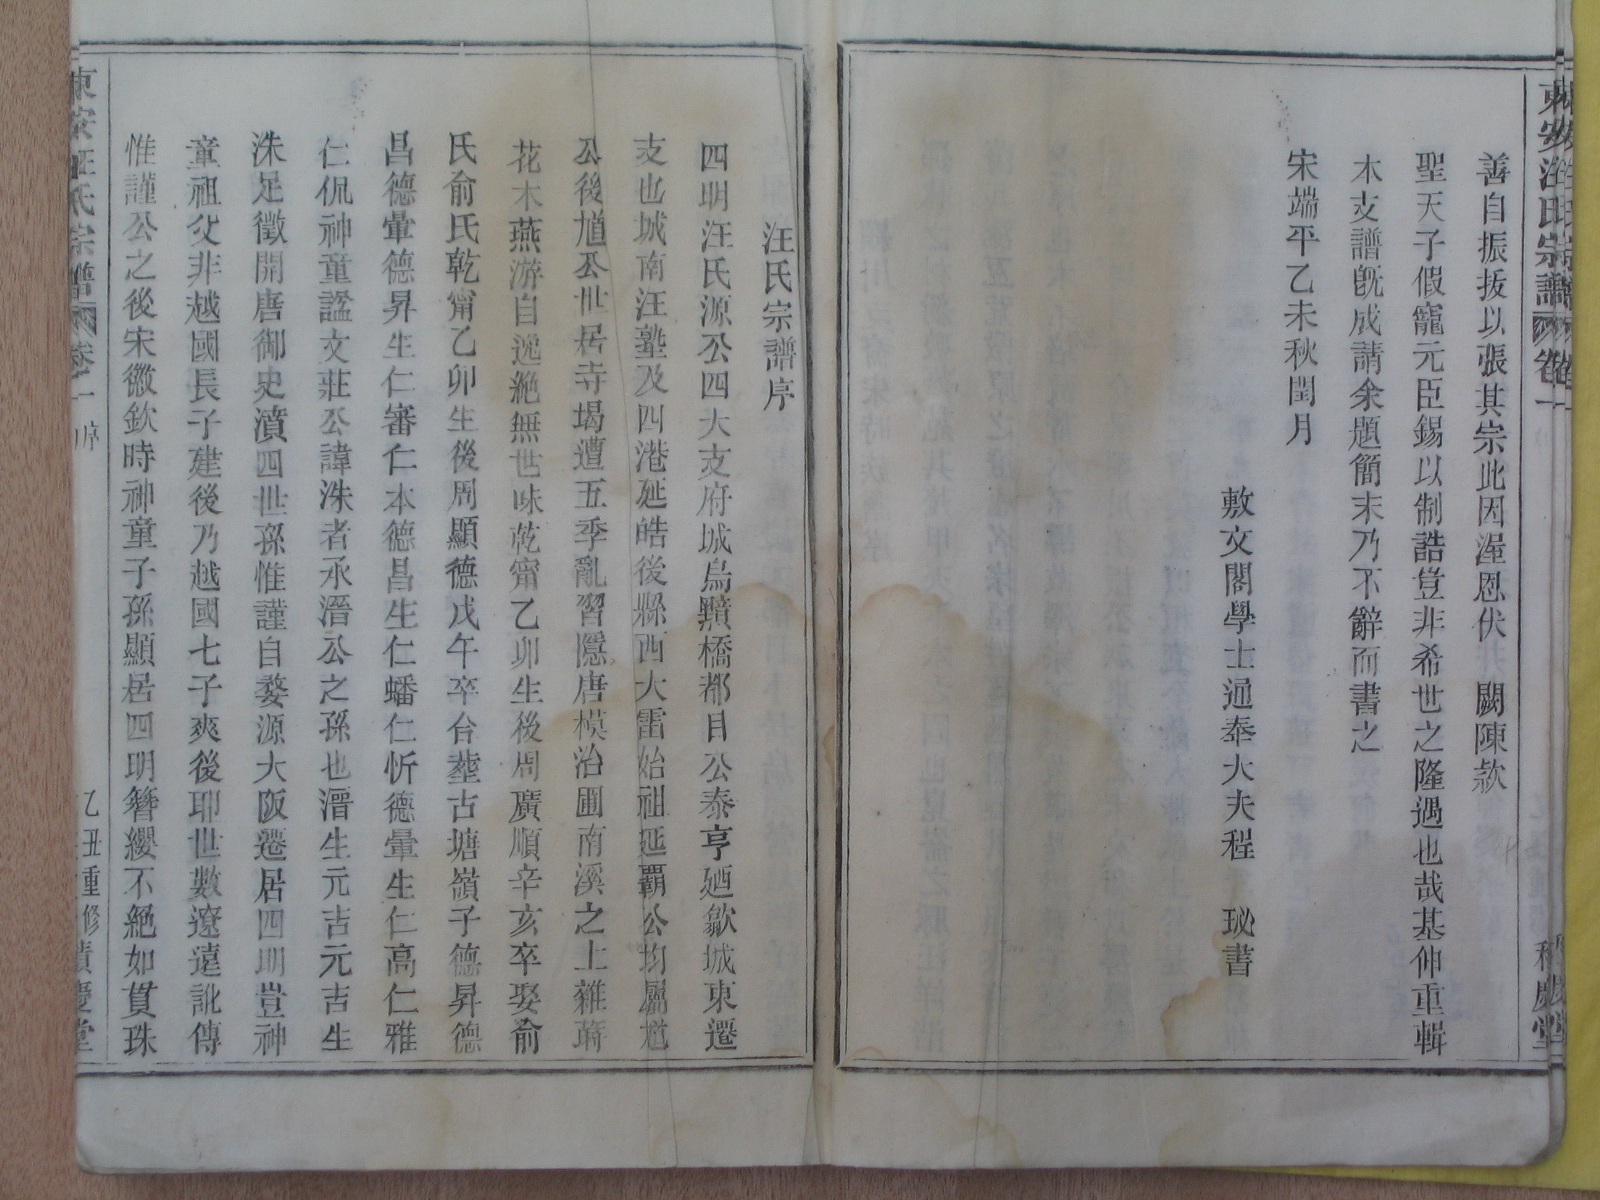 東安汪氏宗譜 卷一
善自振拔以張其宗此因渥恩伏井闕陳欵
聖天子假寵元臣錫以制誥豈非希世之隆遇也哉基仲重輯
木支譜旣成請余題簡末乃不辭而書之
宋端平乙未秋閏月
敷文閣學士通奉大夫程 珌書
汪氏宗譜序
四明汪氏源公四大支府城烏黰橋都目公泰亨廼歙城東遷
支也城南汪塾及四港延皓後縣西大雷始祖延覇公均屬尯
公後馗公世居寺堨遭五季亂習隱唐模治圃南溪之上雜蒔
花木燕游自逸絶無世味乾甯乙卯生後周廣順辛亥卒娶俞
氏俞氏乾甯乙卯生後周顯德戊午卒合塟古塘嶺子德昇德
昌德暈德昇生仁審仁本德昌生仁蟠仁忻德暈生仁高仁雅
仁侃神童諡文莊公諱洙者承溍公之孫也溍生元吉元吉生
洙足徵開唐御史濆四世孫惟謹自婺源大阪遷居四明豈神
童祖父非越國長子建後乃越國七子爽後耶世數遼遠訛傳
惟謹公之後宋徽欽時神童子孫顯居四明簪纓不絶如貫珠
東安汪氏宗譜 卷一 序
乙丑重修積慶堂